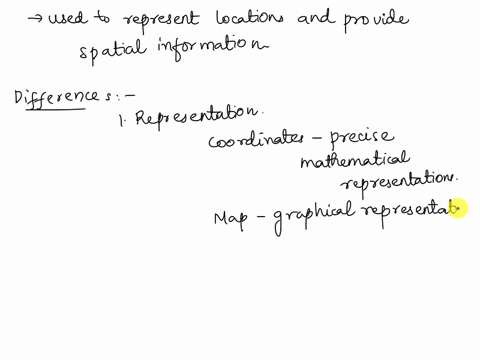 → used to represent locations and provide
spatial information
Differences:-
1. Representation.
coordinates - precise
mathematical
representations.
Map - graphical representat